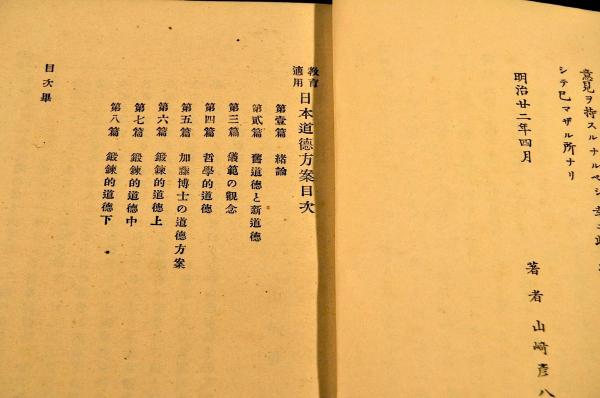 意見ヲ持スルナルベシ
シテ已マザル所ナリ
明治廿二年四月
著者 山崎彦八
教育適用 日本道德方案目次
第壹篇 緒論
第貳篇 舊道德と新道德
第三篇 儀範の觀念
第四篇 哲學的道德
第五篇 加藤博士の道德方案
第六篇 鍛錬的道德上
第七篇 鍛錬的道德中
第八篇 鍛錬的道德下
目次畢